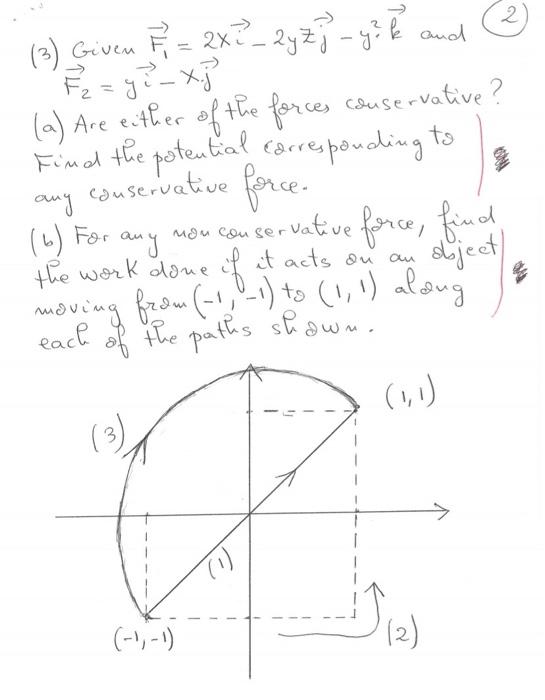 (2)
(3) Given F₁ = 2xi - 2yzj - y²k and
F₂ = yi - xj
(a) Are either of the forces conservative?
Find the potential corresponding to
any conservative force.
(b) For any nonconservative force, find
the work done if it acts on an object
moving from (-1, -1) to (1, 1) along
each of the paths shown.
(1,1)
(3)
(1)
(-1,-1)
(2)